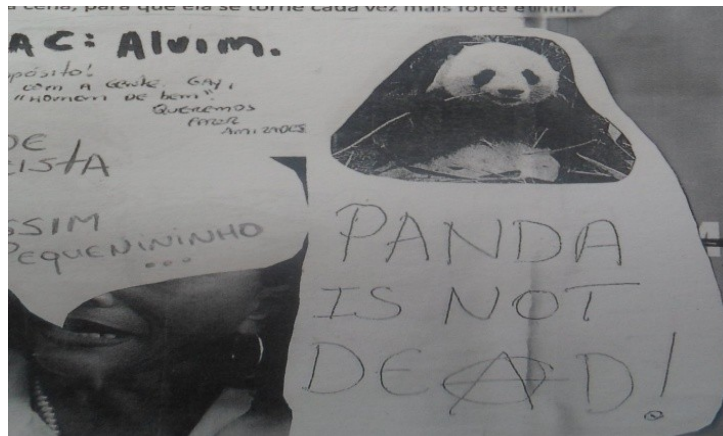 a cena, para que ela se torne cada vez mais forte e unida.
AC: Alvim.
pósito!
com a gente. Gay,
"Homem de bem".
Queremos
fazer
amizades
DE
ISTA
SSIM
PEQUENININHO
...
PANDA
IS NOT
DEAD!